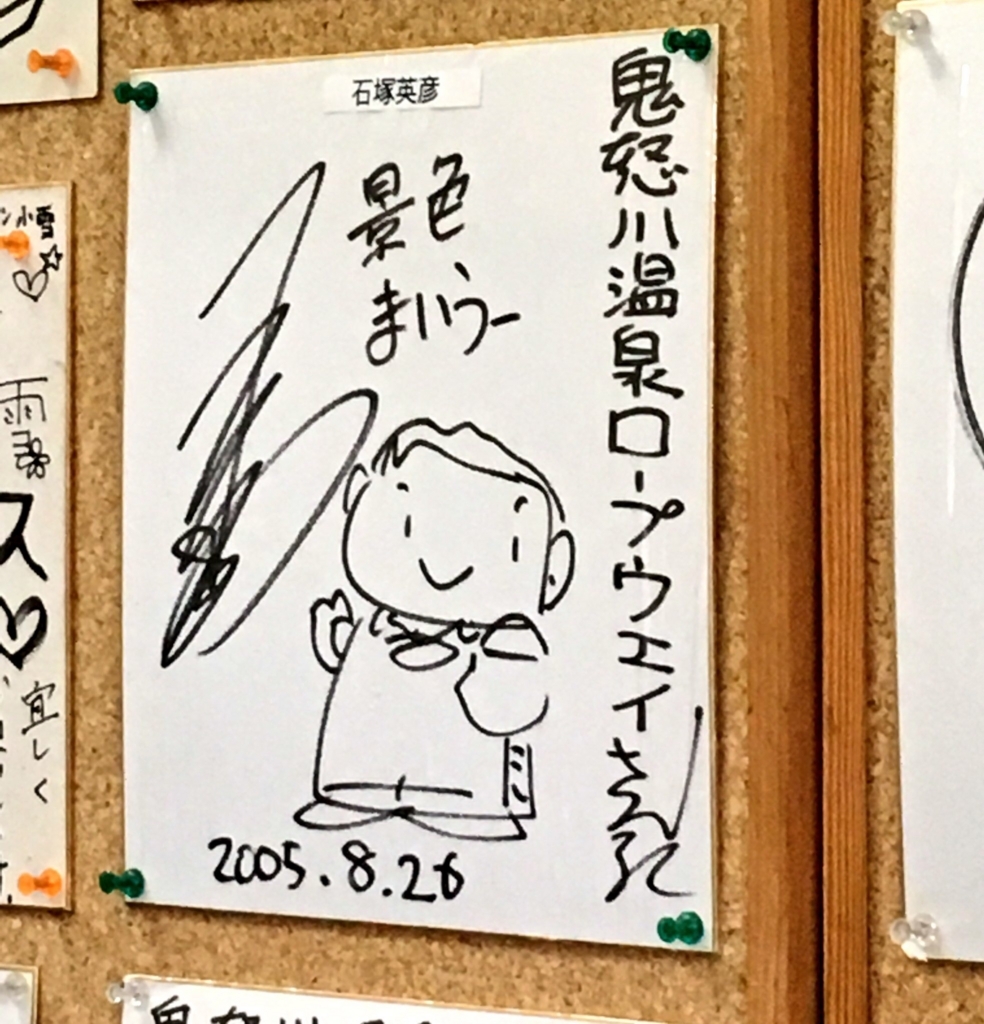 石塚英彦
鬼怒川温泉ロープウエイさん江
景色
まいうー
2005.8.26
小雪
雨
ス
宜しく